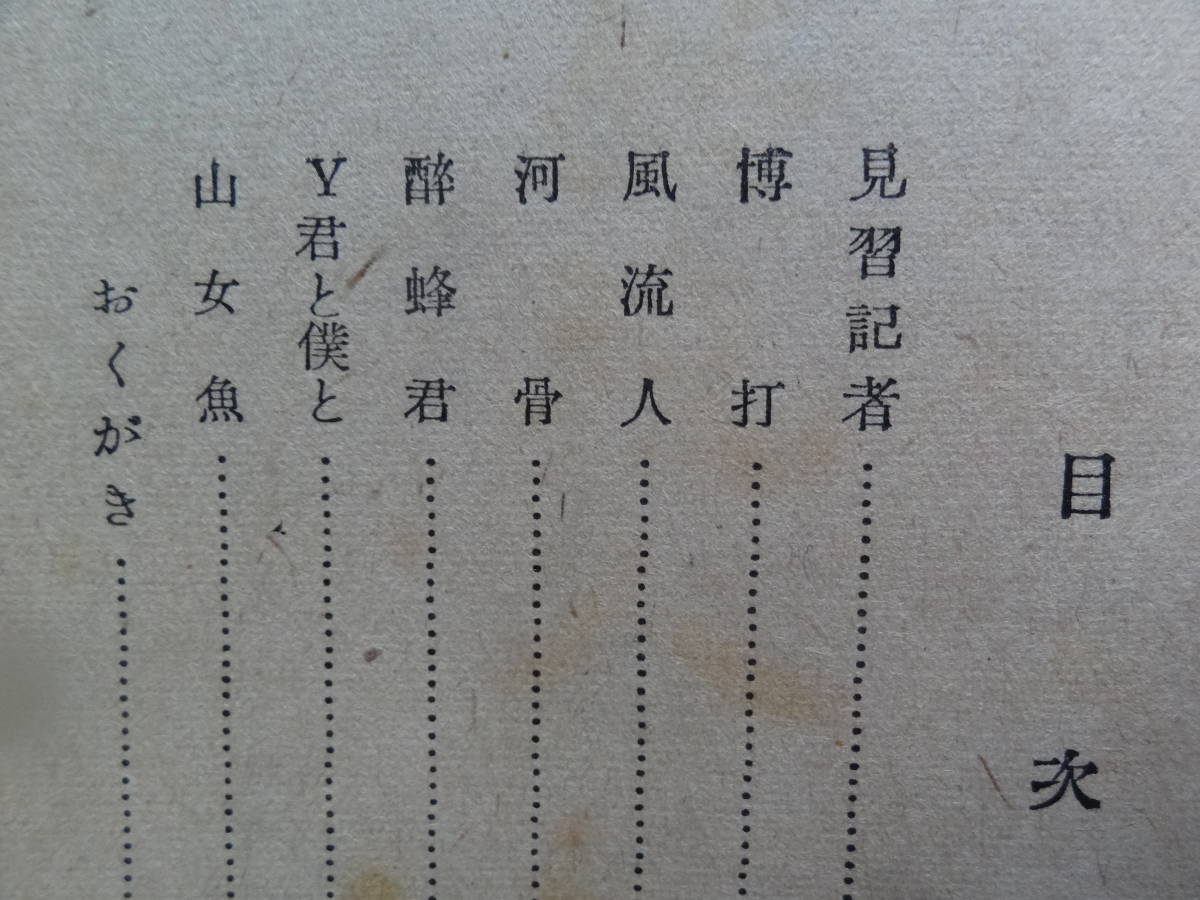 目次
見習記者
博打
風流人
河骨
醉蜂君
Y君と僕と
山女魚
おくがき